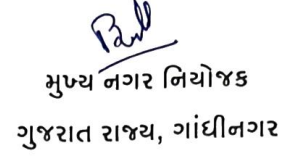 મુખ્ય નગર નિયોજક
ગુજરાત રાજ્ય, ગાંધીનગર